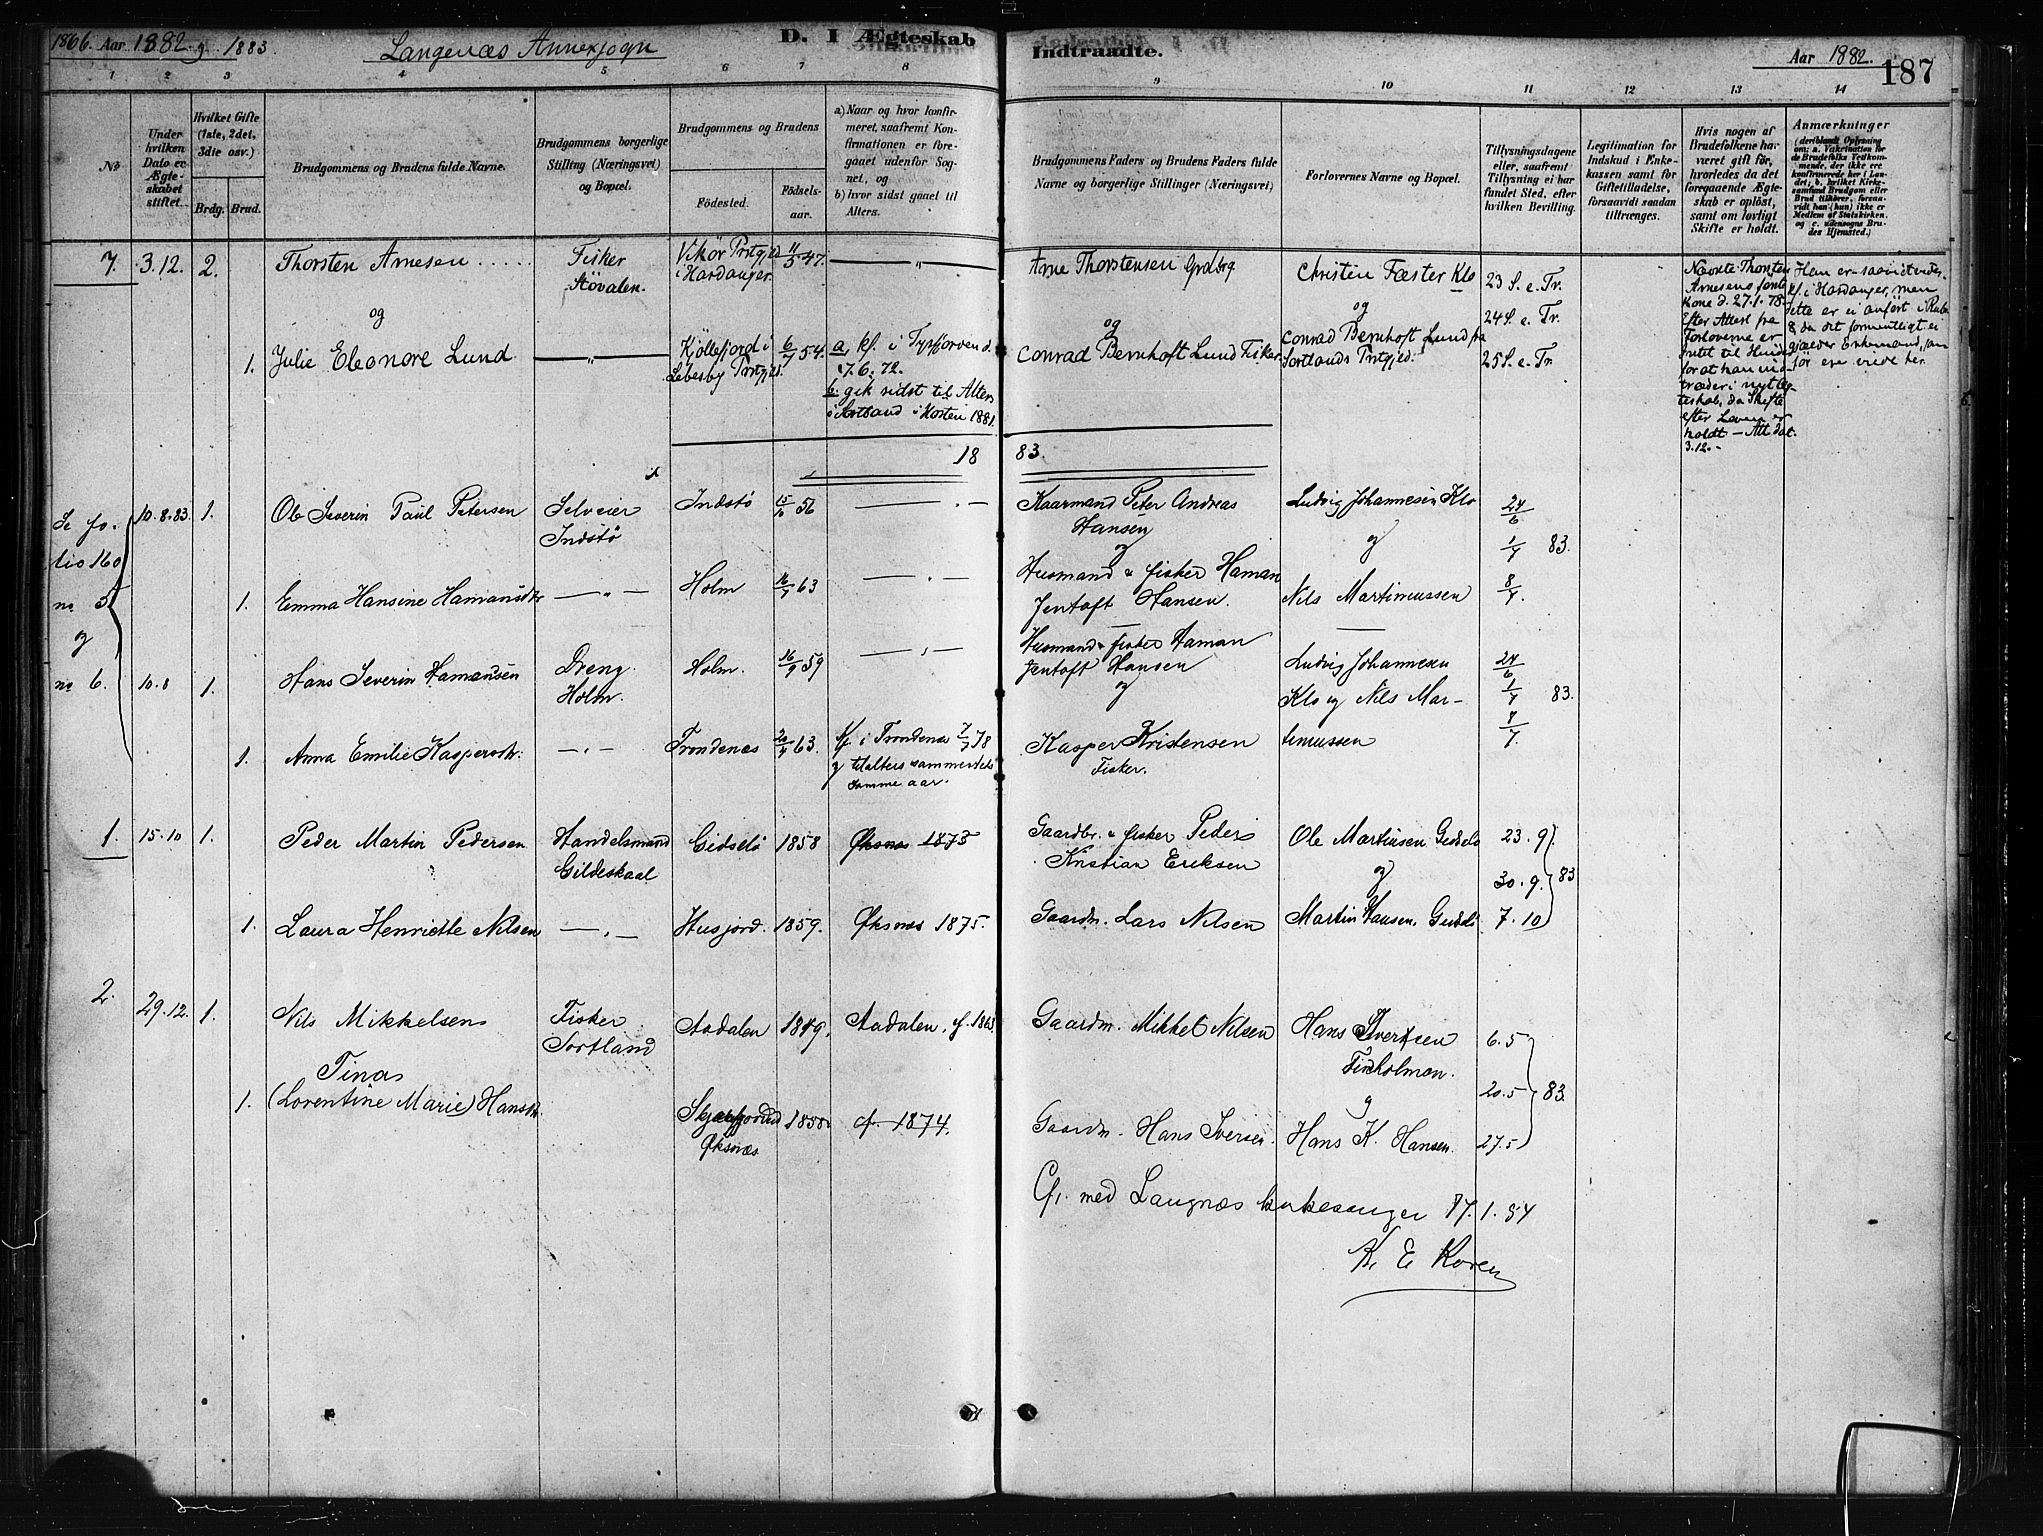 1866. Aar 1882 g 1883.
Langenæs Annexsogn
D. I Ægteskab
Indtraadte.
Aar 1882.
187
1 2 3 4 5 6 7 8 9 10 11 12 13 14
No
Under hvilken Dato er Ægteskabet stiftet.
Hvilket Gifte (1ste, 2det, 3die osv.)
Brdg. Brud.
Brudgommens og Brudens fulde Navne.
Brudgommens borgerlige Stilling (Næringsvei) og Bopæl.
Brudgommens og Brudens
Födested.
Födselsaar.
a) Naar og hvor konfirmeret, saafremt Konfirmationen er foregaaet udenfor Sognet, og
b) hvor sidst gaaet til Alters.
Brudgommens Faders og Brudens Faders fulde Navne og borgerlige Stillinger (Næringsvei)
Forlovernes Navne og Bopæl.
Tillysningsdagene eller, saafremt Tillysning ei har fundet Sted, efter hvilken Bevilling.
Legitimation for Indskud i Enkekassen samt for Giftetilladelse, forsaavidt saadan tiltrænges.
Hvis nogen af Brudefolkene har været gift för, hvorledes da det foregaaende Ægteskab er oplöst, samt om lovligt Skifte er holdt.
Anmærkninger
7. 3.12. 2. Thorsten Arnesen Fisker Støvalen. Vikör Prstgjld i Hardanger 11/5 47. — " —
Arne Thorstensen Grdbrg Christen Fæster Klo 23 S. e. Tr.
og
24 S. e. Tr.
1. Julie Eleonore Lund — " — Kjöllefjord i Lebesby Prstgjld. 6/7 54. a, kf. i Tysfjorven d. 7.6.72.
b. gik sidst til Alters i Sortland i Høsten 1881.
og
Conrad Bernhoft Lund Fisker Conrad Bernhoft Lund fra Sortlands Prstgjed. 25 S. e. Tr.
Nævnte Thorsten Arnesens Kone d. 27.1.78.
Efter Attest fra Forloverne er
for at han
træder i nyt Ægteskab, da Skifte efter Loven er holdt — Att dat. 3.12.-
Han er
kf. i Hardanger, men dette er ei anfört i Rubr 8, da det formentligt ei gjælder Enkemand,
18 83.
Se folio 160 no 5 og no 6.
10.8.83. 1. Ole Severin Paul Petersen Selveier Indstø Indstø 15/10 56 — . —
Kaarmand Peter Andreas Hansen Ludvig Johannesen Klo 24/6
og og 1/7 83.
1. Emma Hansine Hamansdtr — " — Holm 16/7 63 — . —
Husmand & fisker Haman Jentoft Hansen. Nils Martinussen 8/7.
10.8 1. Hans Severin Hamansen Dreng. Holm. Holm. 16/9 59 — , —
Husmand & fisker Haman Jentoft Hansen Ludvig Johannesen 24/6
og Klo og Nils Mar- 1/7 83.
1. Anna Emilie Kaspersdtr. — , — Trondenæs 20/4 63. kf i Trondenæs 7/7 78 g tilalters sammesteds samme aar.
Kasper Kristensen Fisker. tinussen 8/7.
1. 15.10 1. Peder Martin Pedersen Handelsmand Gildeskaal Gidselö 1858 Øksnæs 1873
Gaardbr. & fisker Peder Kristian Eriksen Ole Martinsen Gidselö 23.9.
og 30.9. 83
1. Laura Henriette Nilsen — , — Husjord. 1859. Øksnæs 1875.
Gaardm. Lars Nilsen Martin Hansen, Gidselö 7.10
2. 29.12. 1. Nils Mikkelsen Fisker Sortland Aadalen 1849. Aadalen, cf. 1863
Gaardm. Mikkel Nilsen Hans Iversen Finholmen. 6.5
g 20.5 83.
Tina
1. (Lorentine Marie) Hansdtr. Skjærfjord Øksnæs 1858 cf. 1874.
Gaardm. Hans Iversen. Hans K. Hansen. 27.5
Cfr. med Langnæs kirkesanger 17.1.84
K. E Koren